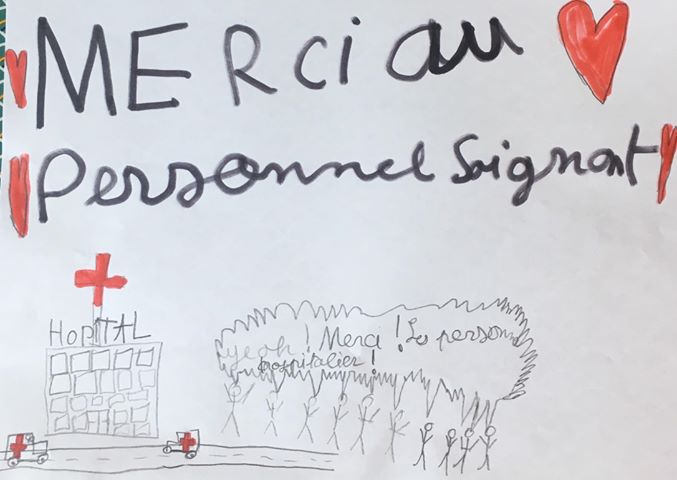 MERCI au
Personnel Soignant
HOPITAL
yeah ! Merci ! Les person
hospitalier !